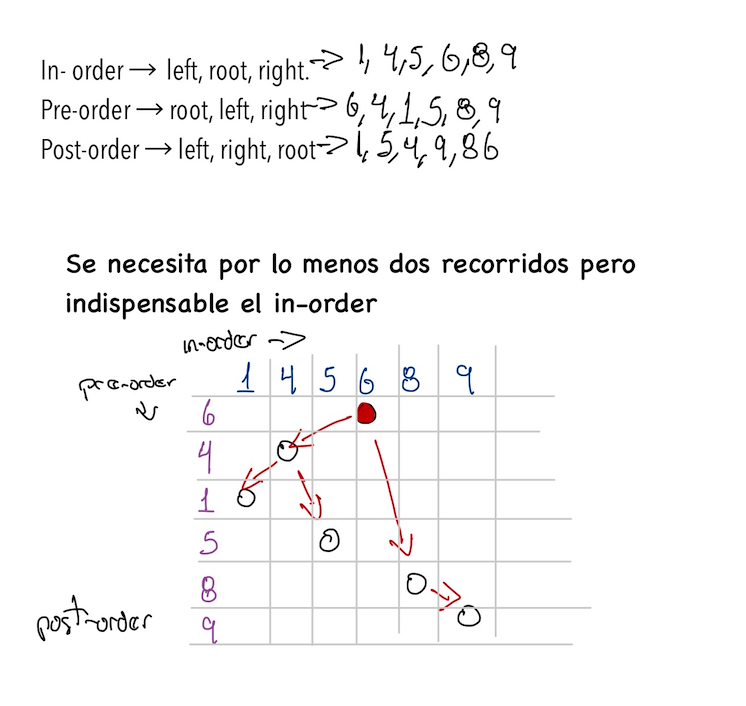 In- order → left, root, right. -> 1, 4, 5, 6, 8, 9
Pre-order → root, left, right -> 6, 4, 1, 5, 8, 9
Post-order → left, right, root -> 1, 5, 4, 9, 8 6
Se necesita por lo menos dos recorridos pero
indispensable el in-order
in-order ->
pre-order
1 4 5 6 8 9
6
4
1
5
8
9
post-order